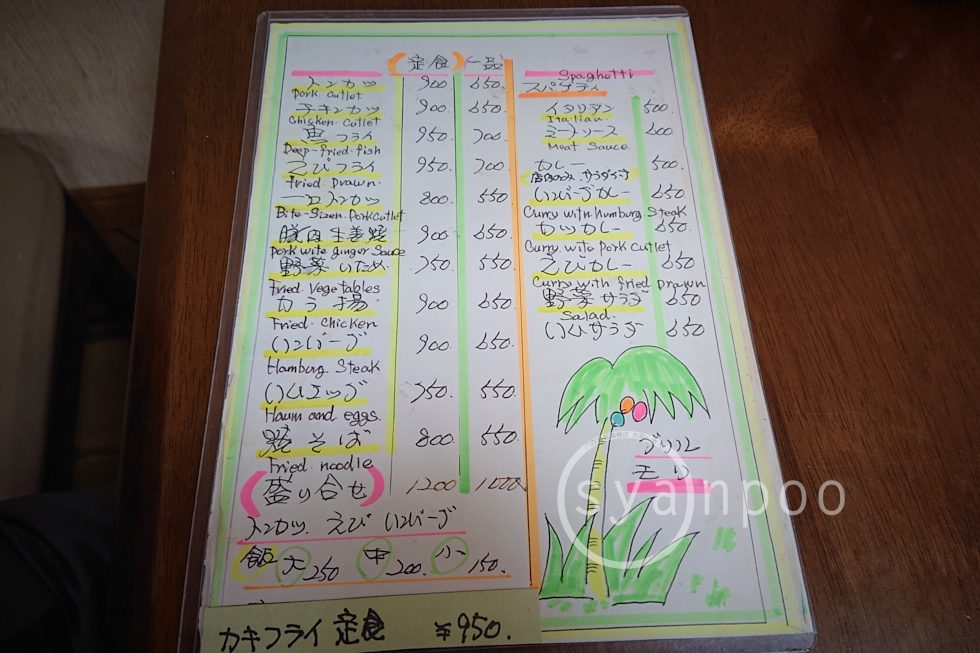 (定食) 一品
トンカツ 900. 650.
Pork Cutlet
チキンカツ 900. 650.
Chicken Cutlet
魚フライ 950. 700.
Deep-fried-fish
えびフライ 950. 700.
fried Prawn.
一口トンカツ 800 550
Bite-Sizen. Porkcutlet
豚肉生姜焼 900 650.
Pork wite ginger Sauce
野菜いため 750. 550.
Fried Vegetables
から揚 900 650.
Fried Chicken
ハンバーグ 900. 650.
Hamburg Steak
ハムエッグ 750. 550.
Haum and eggs.
焼そば 800 550.
Fried noodle
(盛り合せ) 1200 1000
トンカツ. えび ハンバーグ
飯 大 250 中 200. 小 150.
カキフライ 定食 ¥950.
Spaghotti
スパゲティ
イタリアン 500.
Italian.
ミートソース 600.
Meat Sauce.
カレー 500.
店内のみ. サラダつき
ハンバーグカレー 650
Curry with humburg. Steak
カツカレー 650.
Curry wite Pork Cutlet
えびカレー 650
Curry with fried Prawn
野菜サラダ 650
Salad.
ハムサラダ 650
グリル
モリ
syampoo